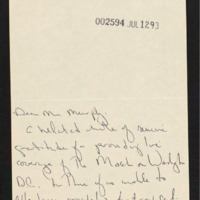 002594 JUL 12 93
Dear Mr. Murphy,
A belated note of sincere
gratitude for providing live
coverage of the March on Washington
D.C. to those of us unable to